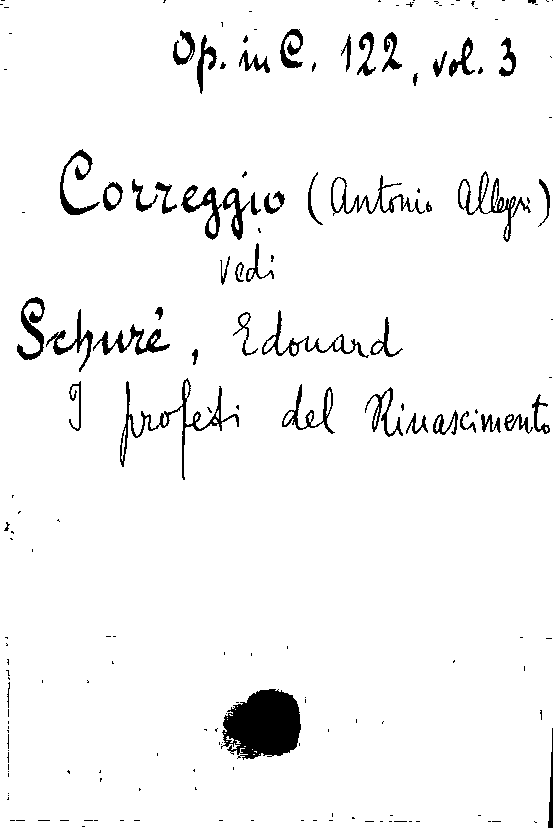 Op. in C. 122, vol. 3
Correggio (Antonio Allegri)
vedi
Schuré, Edouard
I profeti del Rinascimento